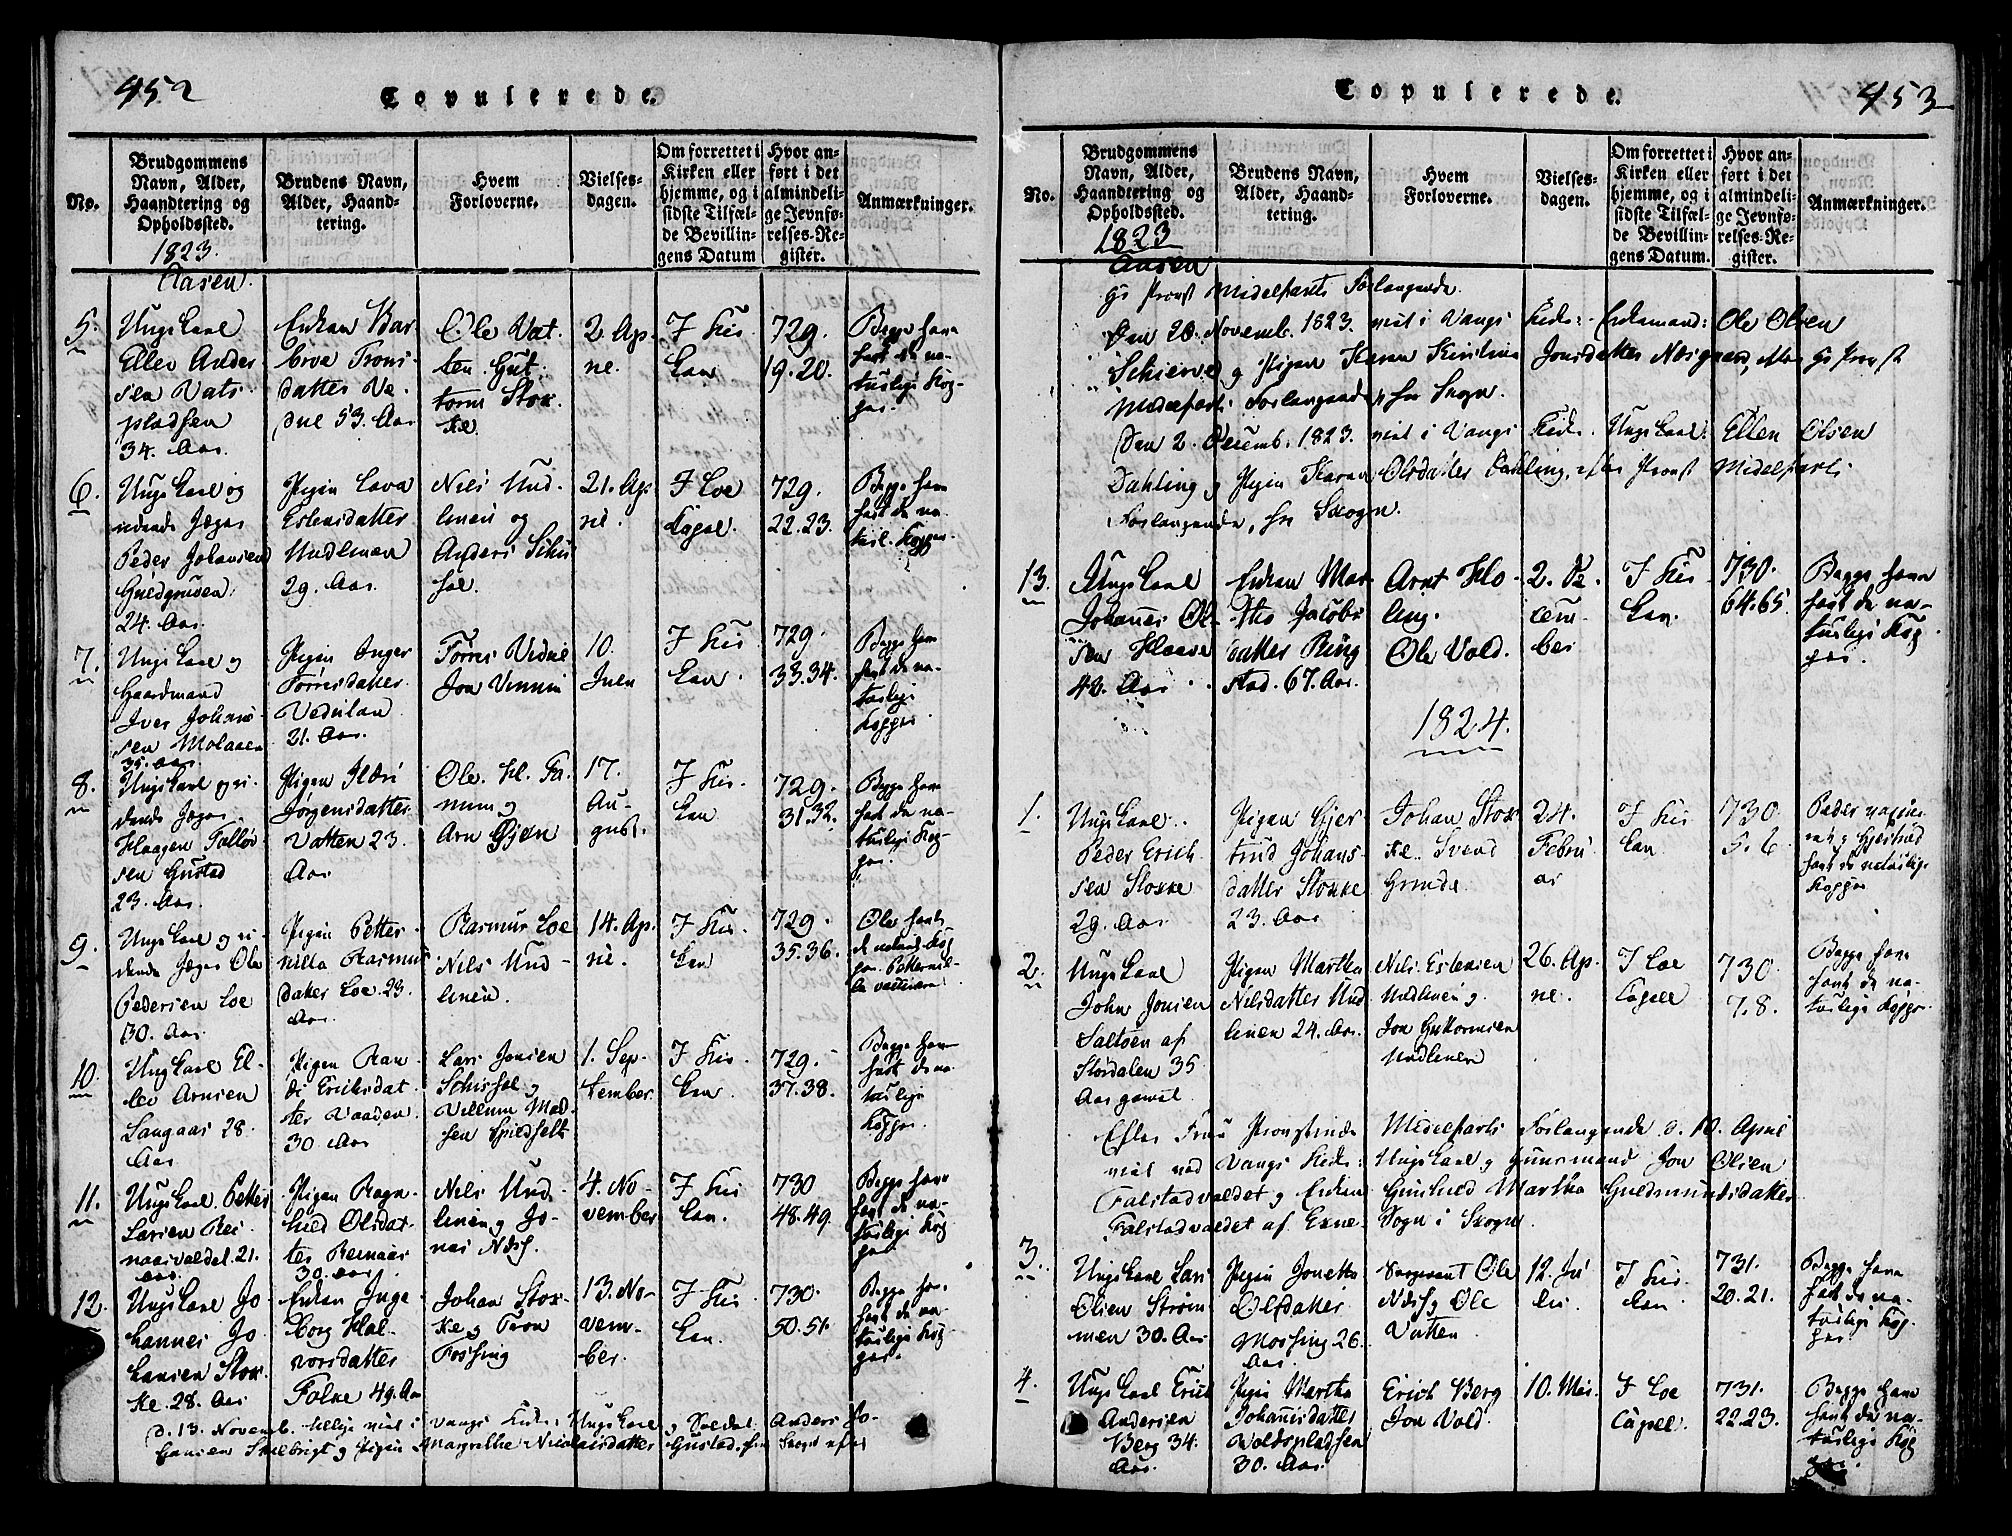 452
Copulerede.
No.
Brudgommens
Navn, Alder,
Haandtering og
Opholdssted.
Brudens Navn,
Alder, Haand-
tering.
Hvem
Forloverne.
Vielses-
dagen.
Om forrettet i
Kirken eller
hjemme, og i
sidste Tilfæl-
de Bevillin-
gens Datum
Hvor an-
ført i det
almindeli-
ge Jevnfø-
relses-Re-
gister.
Anmærkninger.
1823.
Aasen.
5.
Ungkarl
Ellev Ander
sen Vats
pladsen
34. Aar.
Enken Bar
broe Trons
datter Ve
dul 53. Aar
Ole Vat-
ten. Gut
torm Stok
ke.
2. Ap-
ril.
I Kir
ken
729.
19.20.
Begge have
havt de na-
turlige Kop-
per.
6.
Ungkarl og
ridende Jæger
Peder Johansen
Guldgruven
24. Aar.
Pigen Lava
Estensdatter
Undlinen
29. Aar.
Nils Und-
linen og
Anders Skir
fal.
21. Ap
ril.
I Loe
Capel.
729.
22.23.
Begge have
havt de na-
turl. Kopper.
7.
Ungkarl og
Gaardmand
Iver Johans
sen Molaaen
35. Aar.
Pigen Inger
Torresdatter
Vedulan
21. Aar.
Torris Vedul
Jon Vennin
10.
Juni
I Kir
ken.
729.
33.34.
Begge have
havt de na-
turlige
Kopper.
8.
Ungkarl og ri-
dende Jæger
Haagen Tollev
sen Gustad
23. Aar.
Pigen
Jørgensdatter
Vatten 23.
Aar
Ole. Hl. Fa-
num og
Arn Øjen
17.
Au-
gust.
I Kir-
ken
729.
31.32.
Begge have
havt de na-
turlige Kop
per.
9.
Ungkarl og ri-
dende Jæger Ole
Pedersen Loe
30. Aar.
Pigen Petter
nilla Rasmus
datter Loe. 23.
Aar.
Rasmus Loe
Nils Und-
linen.
14. Ap.
ril.
I Kir-
ken
729.
35.36.
Ole havt
de naturl. Kop
per. Petternil-
le vaccineret
10.
Ungkarl El-
lev Arnsen
Langaas 28.
Aar
Pigen Ran
di Eriksdat-
ter Vaaden.
30. Aar
Lars Jonsen
Schirfal og
Villum Mad-
sen Spildselt
1. Sep-
tember
I Kir-
ken.
729.
37.38.
Begge have
havt de na
turlige
Kopper.
11.
Ungkarl Petter
Larsen Rei
naasvaldet. 21.
Aar.
Pigen Ragn
hild Olsdat-
ter Reinaas
30. Aar
Nils Und-
linen og Jo-
nas Ness.
4. No-
vember
I Kir
ken.
730
48.49.
Begge have
havt de na-
turlige Kop
per
12.
Ungkarl Jo-
hannes Jo
hansen Stok
ke. 28. Aar
Enken Inge
borg Hal-
vorsdatter
Falke 49. Aar
Johan Stok-
ke og Tron
Fossing
13. No-
vem-
ber.
I Kir-
ken.
730.
50.51.
Begge have
havt de na-
turlige Kop-
per.
d. 13. Novemb. tillige viet i Vangs Kirke: Ungkarl og Soldat Anders Jo-
hansen Skulbrigt og Pigen Margrethe Nicolaisdatter Gustad. fra Skogn efter
453
Copulerede.
No.
Brudgommens
Navn, Alder,
Haandtering og
Opholdssted.
Brudens Navn,
Alder, Haand-
tering.
Hvem
Forloverne.
Vielses-
dagen.
Om forrettet i
Kirken eller
hjemme, og i
sidste Tilfæl-
de Bevillin-
gens Datum.
Hvor an-
ført i det
almindeli-
ge Jevnfø-
relses-Re-
gister.
Anmærkninger.
1823
Aasen
Hr Provst Midelfarts Forlangende.
Den 20. Novemb. 1823. viet i Vangs Kirke: Enkemand: Ole Olsen
Schierve og Pigen Karen Kirstine Jonsdatter Nesgaard, efter Hr Provst
Midelfarts Forlangende, fra Skogn.
Den 2. Decemb. 1823. viet i Vangs Kirke. Ungkarl: Ellen Olsen
Dahling og Pigen Karen Olsdatter Dahling, efter Provst Midelfarts
Forlangende, fra Skogn.
13.
Ungkarl
Johannes Ol-
sen Haave
42. Aar.
Enken Mar-
tha Jacobs
datter Ring
stad. 67. Aar.
Arnt Ho-
ling.
Ole Vold.
2. De
cem-
ber
I Kir
ken.
730.
64.65.
Begge have
havt de na-
turlige Kop
per.
1824.
1.
Ungkarl
Peder Erich
sen Stokke
29. Aar
Pigen Gjer
trud Johans-
datter Stokke
23. Aar
Johan Stok
ke. Svend
Grinde
24.
Febru
ar
I Kir
ken
730.
5.6
Peder vaccine
ret og Gjertrud
havt de naturlige
Kopper
2.
Ungkarl
John Jonsen
Saltøen af
Størdalen 35
Aar gamel.
Pigen Martha
Nilsdatter Und
linen 24. Aar.
Nils. Estensen
Undlinen og
Jon Guttormsen
Undlinen
26. Ap-
ril.
I Loe
Capel
730.
7.8.
Begge have
havt de na-
turlige Kopper.
Efter Frue Provstinde Midelfarts Forlangende d. 10. April
viet ved Vangs Kirke: Ungkarl og Huusmand Jon Olsen
Falstadvaldet og Enken Gunhild Martha Guldmundsdatter
Falstadvaldet af Ekne- Sogn i Skogn.
3.
Ungkarl Lars
Olsen Strøm-
men 30. Aar
Pigen Jonetta
Olsdatter
Mossing 26.
Aar.
Sergeant Ole
Ness og Ole
Vatten
12. Ju
li.
I Kir
ken
731.
20.21.
Begge have
havt de na-
turlige Kop-
per
4.
Ungkarl Erich
Andersen
Berg 34.
Aar.
Pigen Martha
Johannisdatter
Woldspladsen
30. Aar.
Erich Berg
Jon Vold.
10. Mai.
I Loe
Capel.
731.
22.23.
Begge have
havt de na-
turlige Kop
per.